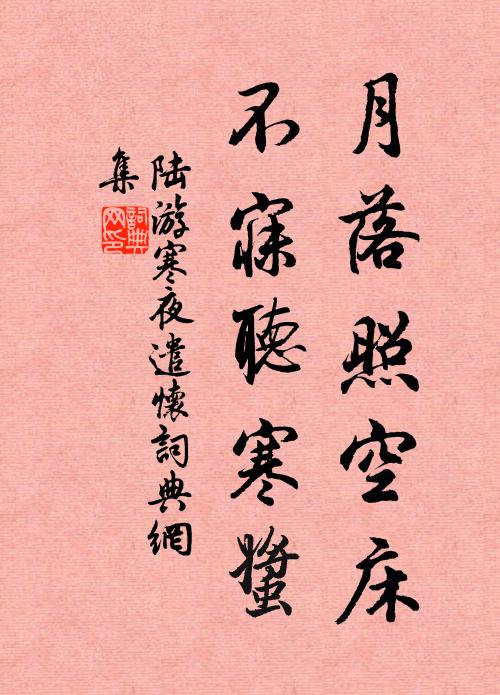 月落照空床
不寐聽寒螿
陸游寒夜遣懷詞典網
集
詞典
网印